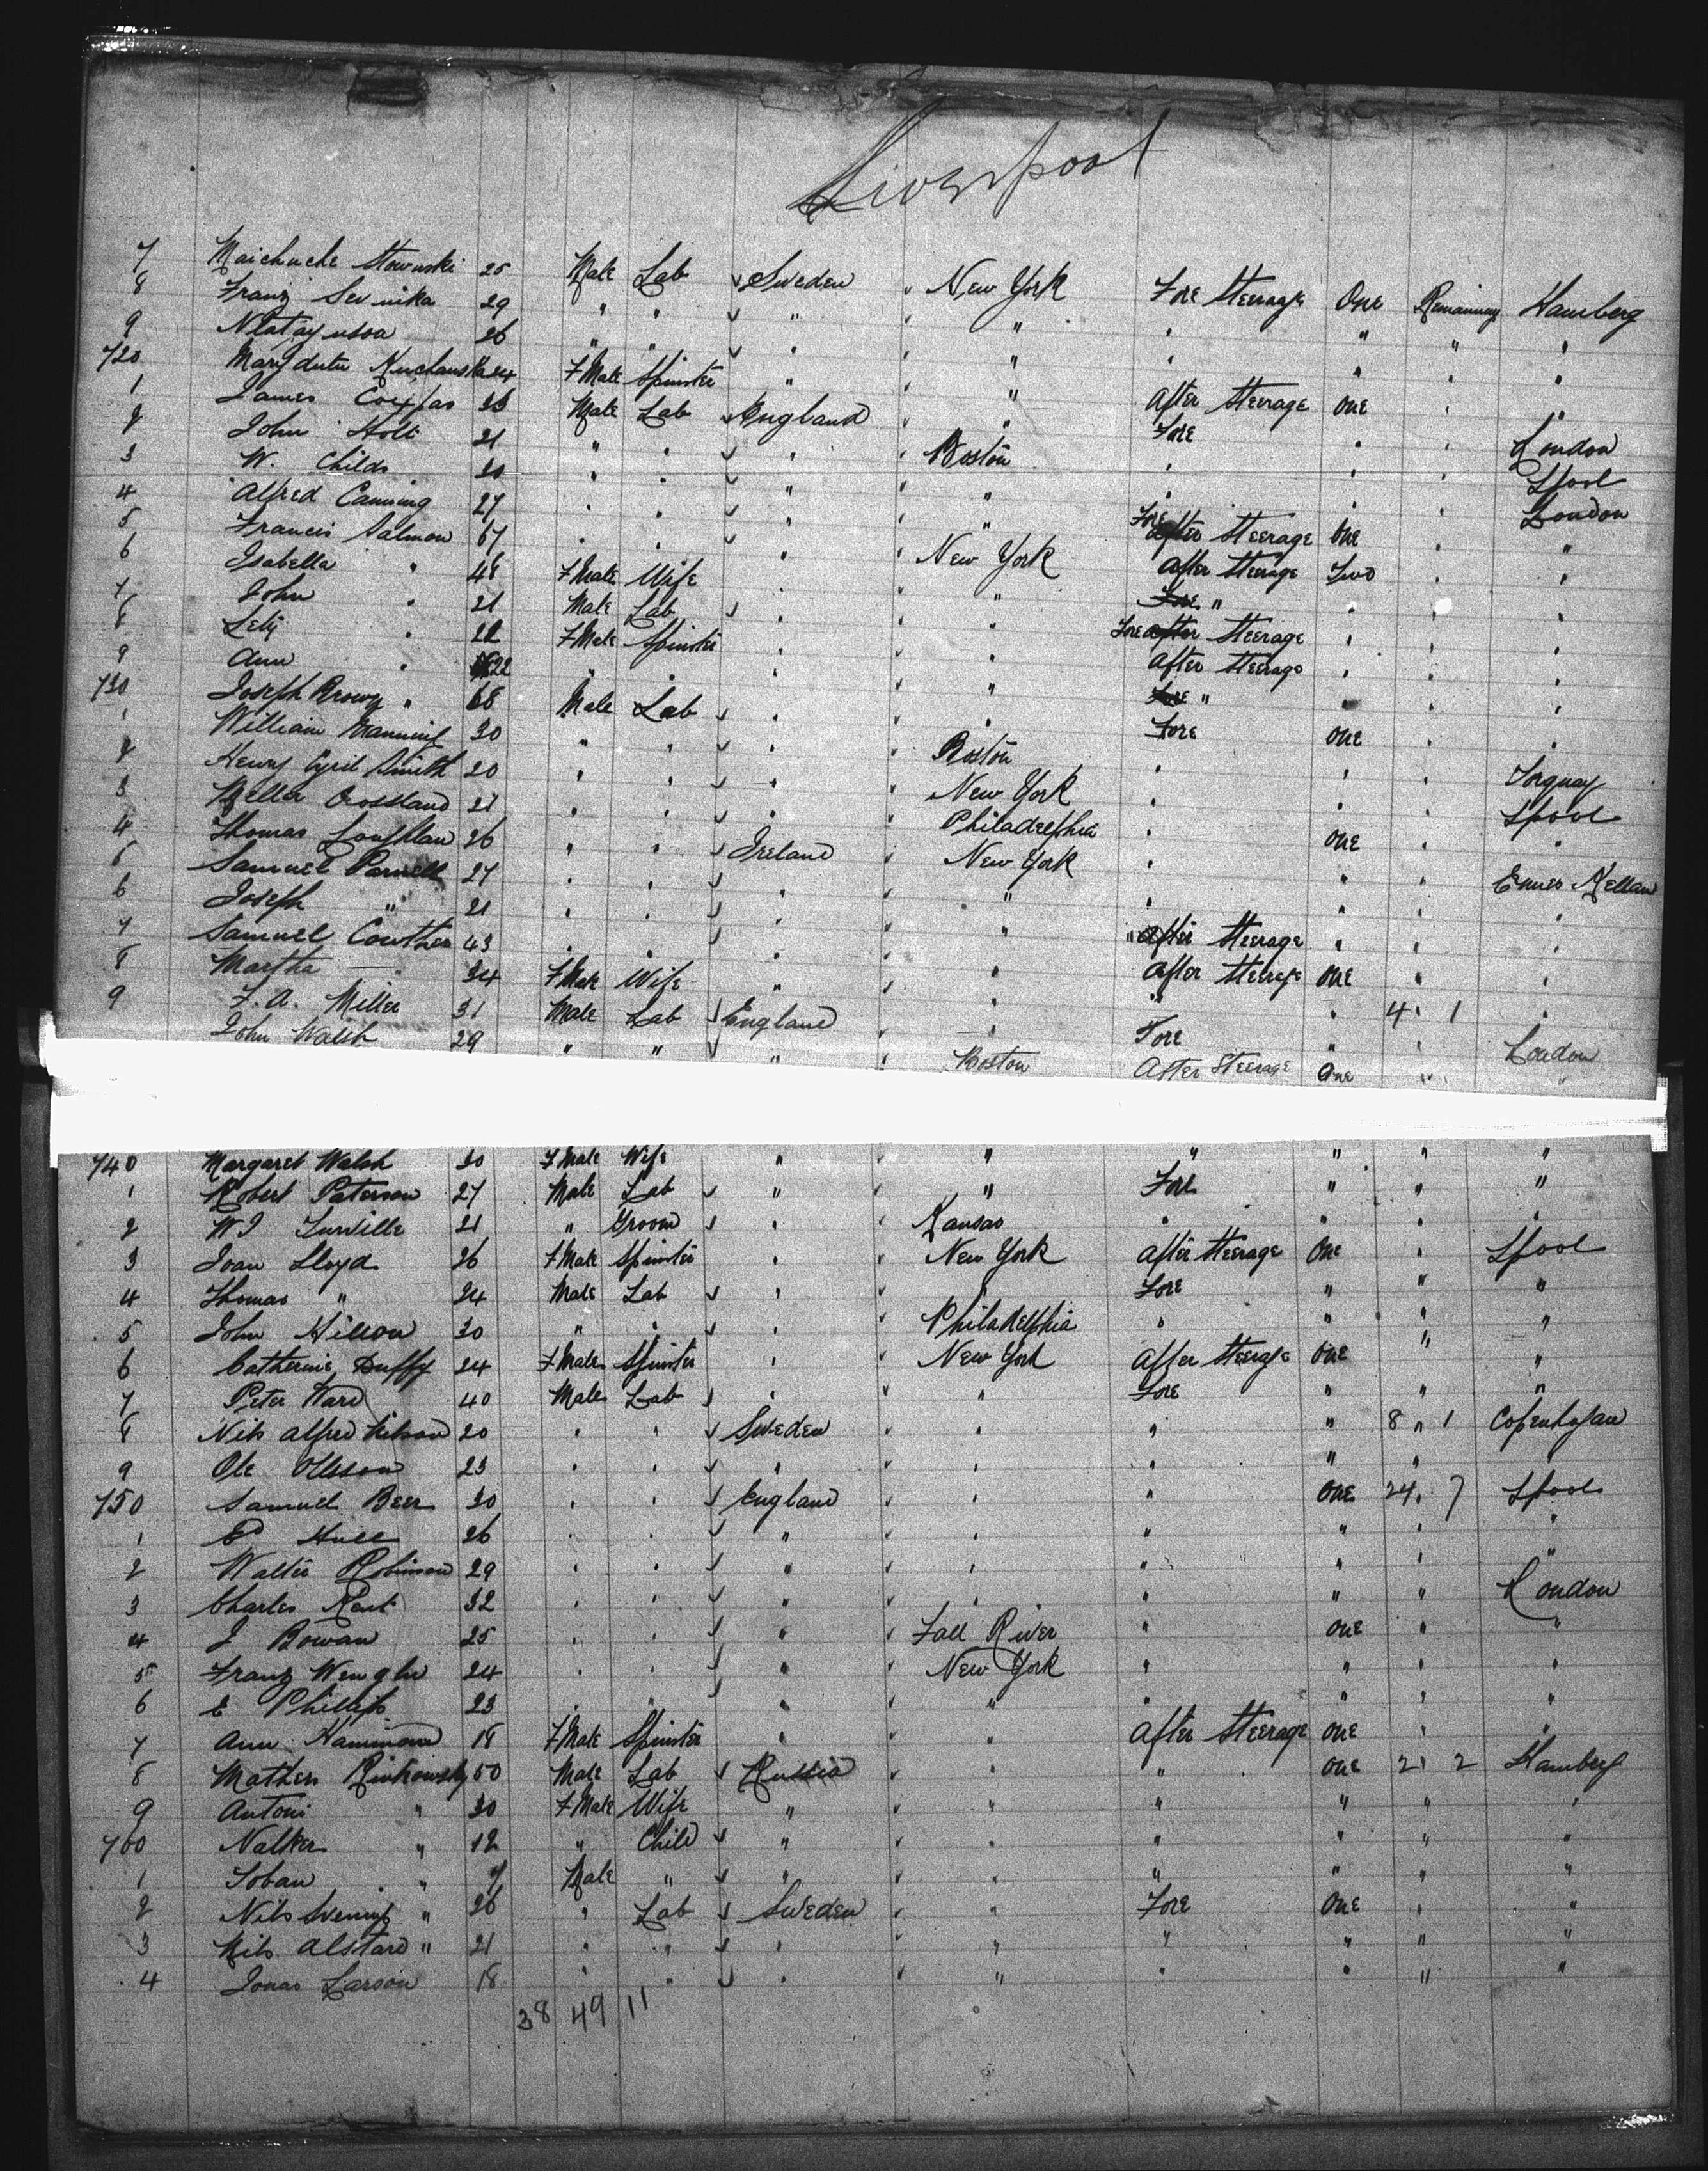 Liverpool
7 25 Male Lab Sweden New York Fore Steerage One Remaining Hamberg
8 Franz 29 " " " " " " " "
9 26 " " " " " " " "
720 24 FMale Spinster " " After Steerage One " "
1 James 33 Male Lab England " Fore " " London
2 John Holt 21 " " " Boston " " " Lpool
3 W. Childs 20 " " " " " " " London
4 Alfred Canning 27 " " " " Fore Steerage One " "
5 Francis Salmon 67 " " " New York After Steerage Two " "
6 Isabella " 48 FMale Wife " " " " " "
7 John " 21 Male Lab " " Fore Steerage " " "
8 " 22 FMale Spinster " " After Steerage " " "
9 Ann " 22 " " " " " " " "
730 Joseph Brown " 68 Male Lab " " Fore One " "
1 William Manning 30 " " " Boston " " " Torquay
2 Henry Cyril Smith 20 " " " New York " " " Lpool
3 Crossland 21 " " " Philadelphia " One " "
4 Thomas Loughlan 26 " " Ireland New York " " "
5 Samuel Parnell 27 " " " " " " " "
6 Joseph " 21 " " " " After Steerage " " "
7 Samuel Cowther 43 " " " " After Steerage One " "
8 Martha 34 FMale Wife " " " " 4 " 1 "
9 F. A. Miller 31 Male Lab England " Fore " " London
John Walsh 29 " " " Boston After Steerage One " "
740 Margaret Walsh 30 FMale Wife " " " " " "
1 Robert Paterson 27 Male Lab " " Fore " " "
2 W J 21 " Groom " Kansas " " " "
3 Joan Lloyd 26 FMale Spinster " New York After Steerage One " Lpool
4 Thomas " 24 Male Lab " " Fore " " "
5 John 30 " " " Philadelphia " " " "
6 Catherine Duffy 24 FMale Spinster " New York After Steerage One " "
7 Peter Ward 40 Male Lab " " Fore " " "
8 Nils Alfred Nilson 20 " " Sweden " " " 8 " 1 Copenhagan
9 Ole Ollsson 23 " " " " " " "
750 Samuel Beer 30 " " England " " One 24 " 7 Lpool
1 Hull 26 " " " " " " " "
2 Walter Robinson 29 " " " " " " " "
3 Charles Kent 32 " " " " " " " London
4 J Bowan 25 " " " Fall River " One " "
5 Franz 24 " " " New York " " " "
6 E Phillips 23 " " " " " " " "
7 Ann Hammond 18 FMale Spinster " " After Steerage One " "
8 Mathers Rinkowsky 50 Male Lab Russia " " One 2 " 2 Hamberg
9 Antoni " 30 FMale Wife " " " " " "
760 " 12 " Child " " " " " "
1 " 7 Male " " " " " " "
2 Nils " 26 " Lab Sweden " Fore One " "
3 Nils Alstard " 21 " " " " " " " "
4 Jonas Larson 18 " " " " " " " "
38 49 11